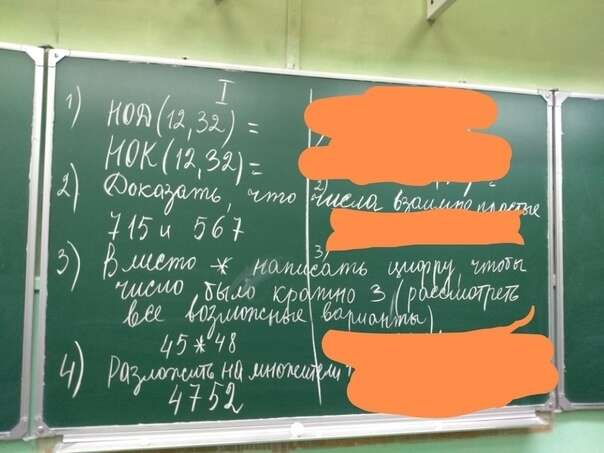 I
1) НОД (12,32) =
НОК (12,32) =
2) Доказать, что числа взаимно простые
2)
715 и 567
3) Вместо * написать цифру, чтобы
3)
число было кратно 3 (рассмотреть
все возможные варианты)
45*48
4) Разложить на множители
4752